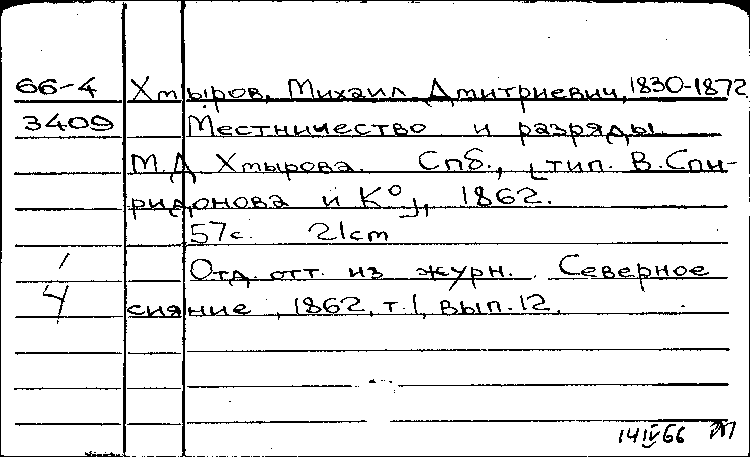 66-4 Хмыров, Михаил Дмитриевич, 1830-1872
3409 Местничество и разряды.
М.Д. Хмырова. Спб., [тип. В. Спи-
ридонова и К°], 1862.
57с. 21cm
Отд. отт. из журн. Северное
сияние, 1862, т.1, вып.12.
1
4
14 IV 66